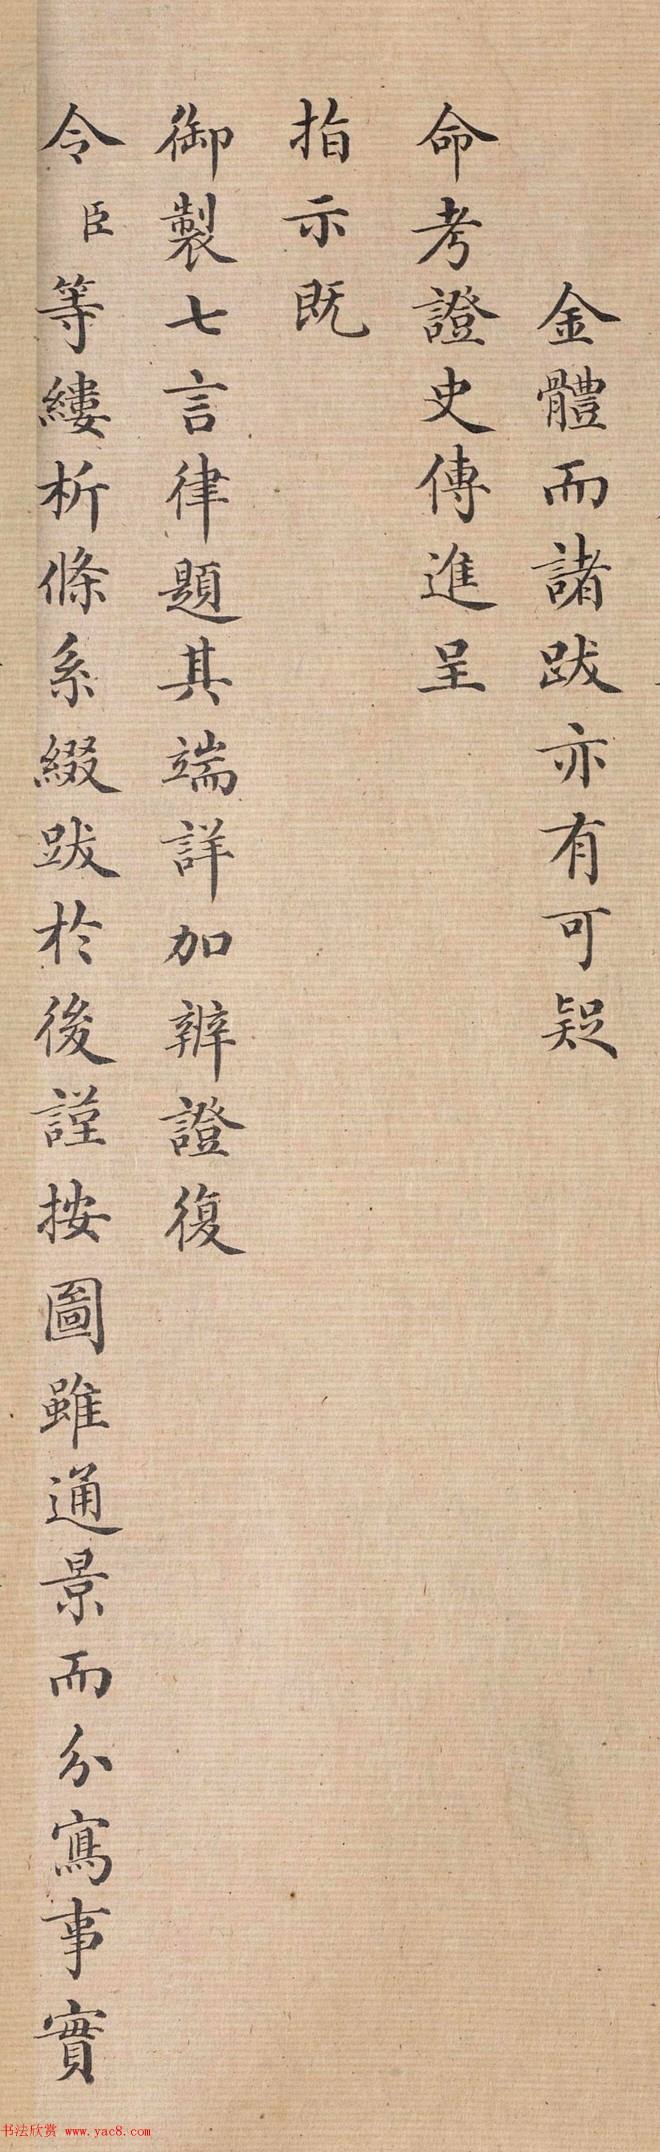 金體而諸跋亦有可疑
命考證史傳進呈
指示既
御製七言律題其端詳加辨證復
令臣等縷析條系綴跋於後謹按圖雖通景而分寫事實
书法欣赏 www.yac8.com